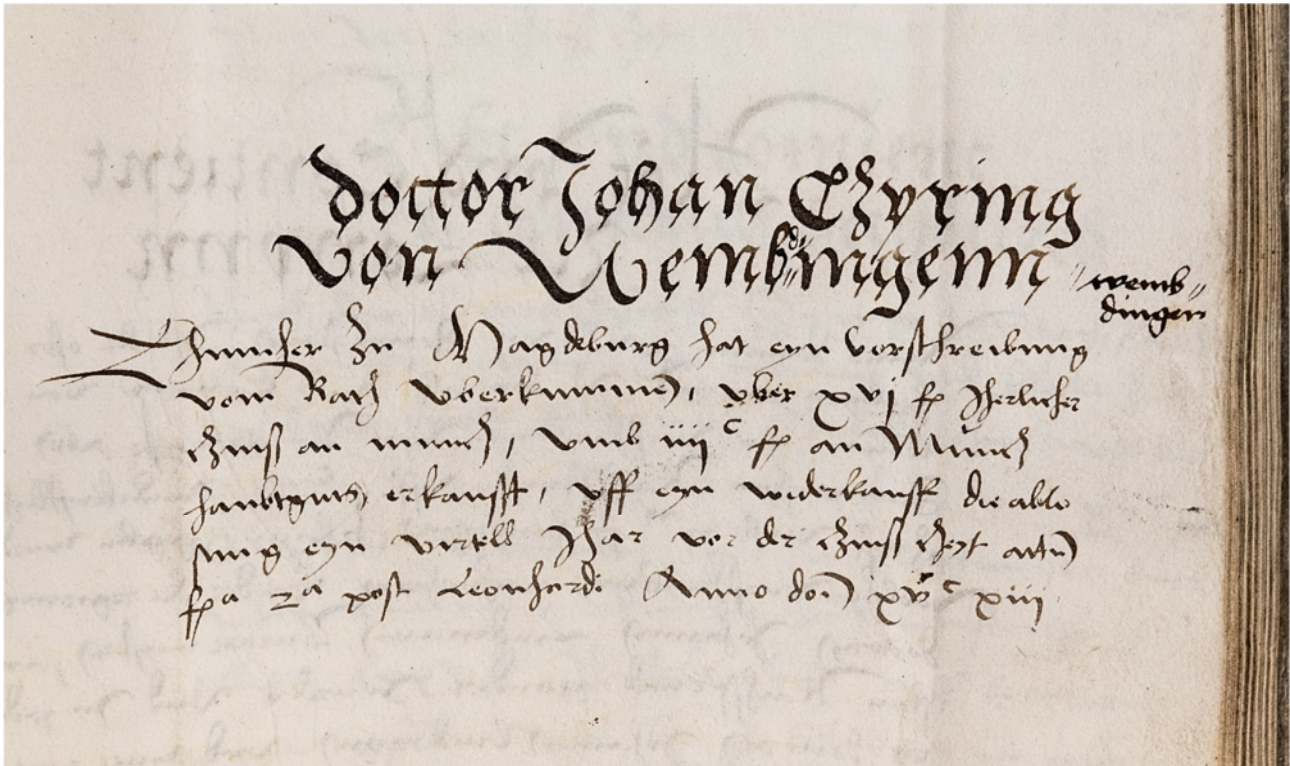 doctor Johan Czyring
von Wembdingenn
wemb-
dingen
Thumher zu Magdeburg hat eyn vorschreibung
vom Rath vberkummen, vber xvj fl Jherlicher
czinß an muncz, vmb iiijc fl an Muncz
haubtguts erkaufft, vff eyn widerkauff die ablo
sung eyn virtell Jhar vor der czinß czeyt actu
fra 2a post Leonhardi Anno doi xvc xiij